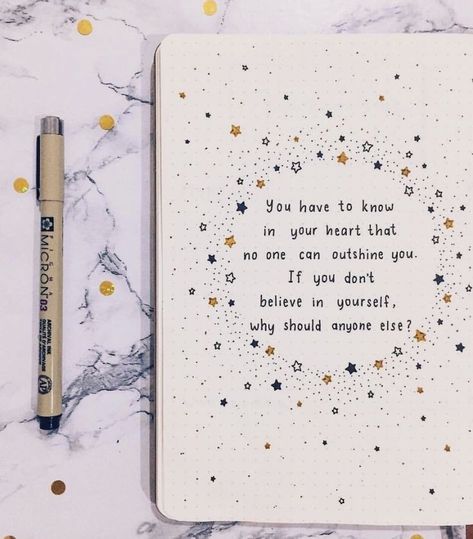 MICRON 03
ARCHIVAL INK
You have to know
in your heart that
no one can outshine you.
If you don't
believe in yourself,
why should anyone else?